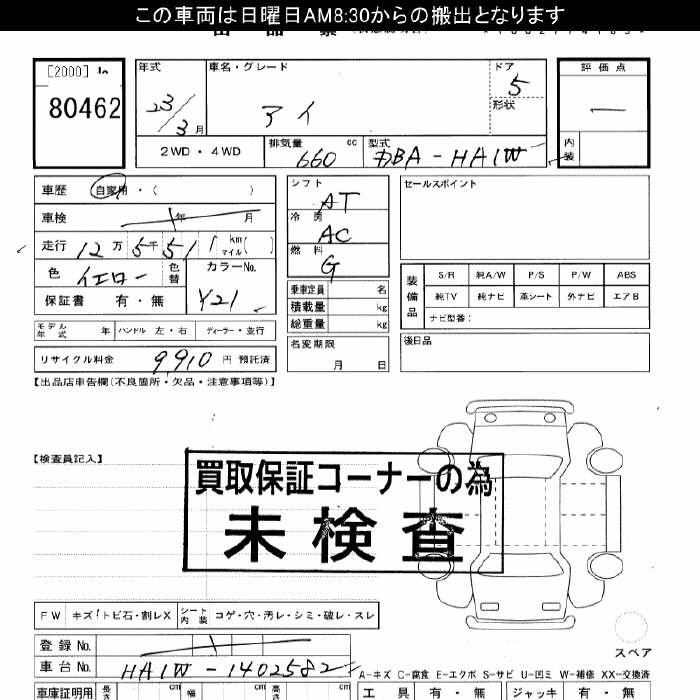 この車両は日曜日AM8:30からの搬出となります
[2000]
80462
年式
23/3月
車名・グレード
アイ
ドア
5
形状
評価点
―
内装
2WD・4WD
排気量
660 cc
型式
DBA-HA1W
車歴 自家用・( )
車検 年 月
走行 12万5千51 km マイル( )
色 イエロー
色替
カラーNo.
Y21
保証書 有・無
シフト
AT
冷房
AC
燃料
G
乗車定員 名
積載量 kg
総重量 kg
名変期限
月 日
セールスポイント
装備品
S/R 純A/W P/S P/W ABS
純TV 純ナビ 革シート 外ナビ エアB
ナビ型番:
後日品
モデル年式 年 ハンドル 左・右 ディーラー・並行
リサイクル料金 9910 円 預託済
【出品店申告欄(不良箇所・欠品・注意事項等)】
【検査員記入】
買取保証コーナーの為
未検査
FW キズ!トビ石・割レX シート内装 コゲ・穴・汚レ・シミ・破レ・スレ
スペア
登録No.
車台No. HA1W-1402582
A-キズ C-腐食 E-エクボ S-サビ U-凹ミ W-補修 XX-交換済
車庫証明用 長さ cm 幅 cm 高さ cm
工具 有・無 ジャッキ 有・無